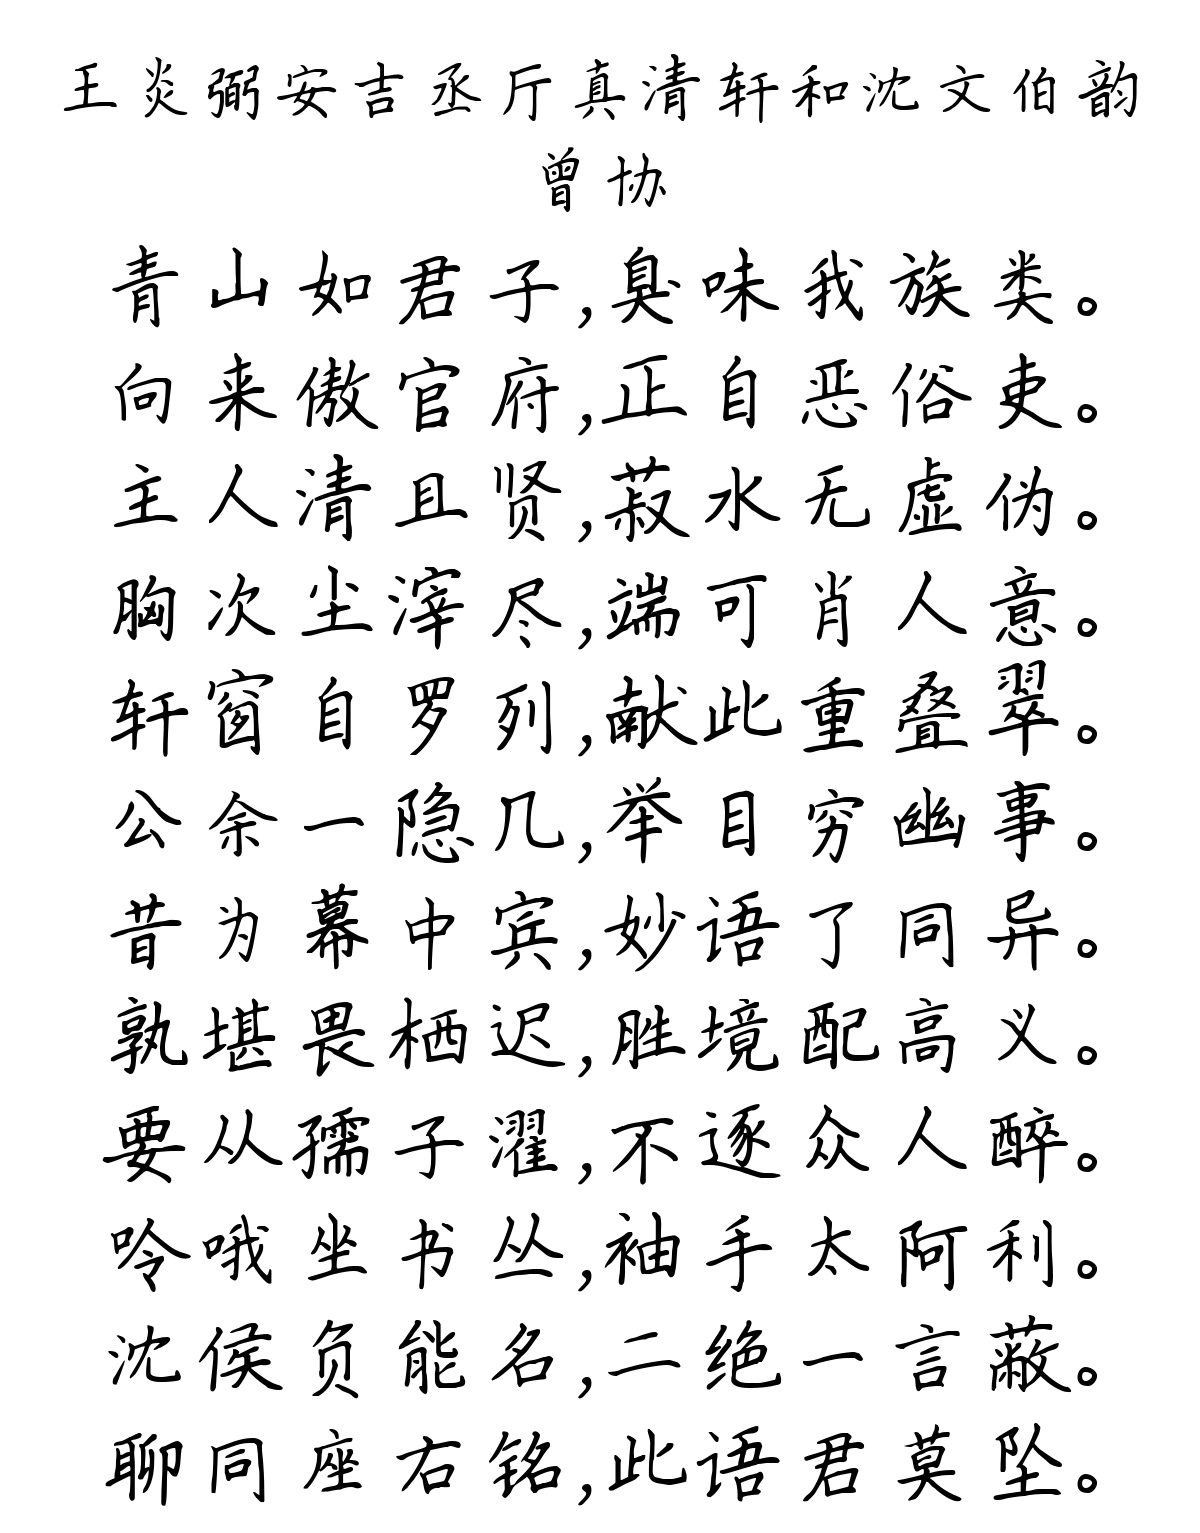 王炎弼安吉丞厅真清轩和沈文伯韵
曾协
青山如君子,臭味我族类。
向来傲官府,正自恶俗吏。
主人清且贤,菽水无虚伪。
胸次尘滓尽,端可肖人意。
轩窗自罗列,献此重叠翠。
公余一隐几,举目穷幽事。
昔为幕中宾,妙语了同异。
孰堪畏栖迟,胜境配高义。
要从孺子濯,不逐众人醉。
呤哦坐书丛,袖手太阿利。
沈侯负能名,二绝一言蔽。
聊同座右铭,此语君莫坠。